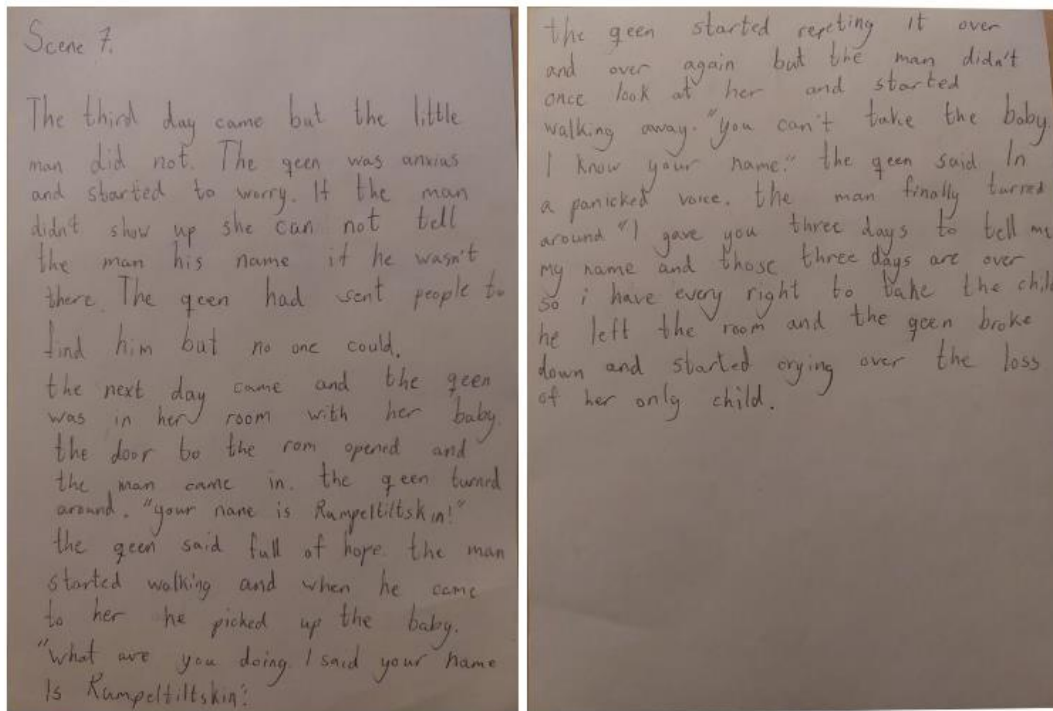 Scene 7.
The third day came but the little
man did not. The qeen was anxias
and started to worry. If the man
didn't show up she can not tell
the man his name if he wasn't
there. The qeen had sent people to
find him but no one could.
the next day came and the qeen
was in her room with her baby.
the door to the rom opened and
the man came in. the qeen turned
around. "your name is Rumpeltiltskin!"
the qeen said full of hope. the man
started walking and when he came
to her he picked up the baby.
"What are you doing. I said your name
Is Rumpeltiltskin".
the qeen started repeting it over
and over again but the man didn't
once look at her and started
walking away. "you can't take the baby
I know your name." the qeen said In
a panicked voice. the man finally turned
around "I gave you three days to tell me
my name and those three days are over
so i have every right to take the child
he left the room and the qeen broke
down and started crying over the loss
of her only child.